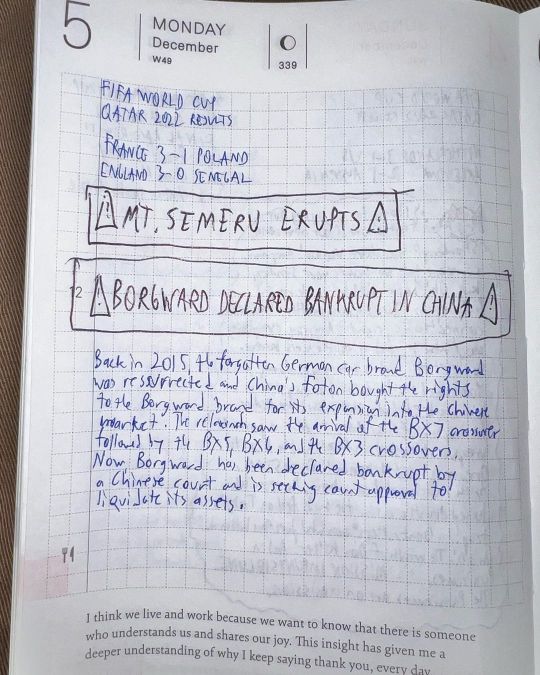 5
MONDAY
December
W49
339
FIFA WORLD CUP
QATAR 2022 RESULTS
FRANCE 3-1 POLAND
ENGLAND 3-0 SENEGAL
MT. SEMERU ERUPTS
12
BORGWARD DECLARED BANKRUPT IN CHINA
Back in 2015, the forgotten German car brand Borgward
was ressurrected and China's Foton bought the rights
to the Borgward brand for its expansion into the Chinese
market. The relaunch saw the arrival of the BX7 crossover
followed by the BX5, BX6, and the BX3 crossovers.
Now, Borgward has been declared bankrupt by
a Chinese court and is seeking court approval to
liquidate its assets.
I think we live and work because we want to know that there is someone
who understands us and shares our joy. This insight has given me a
deeper understanding of why I keep saying thank you, every day